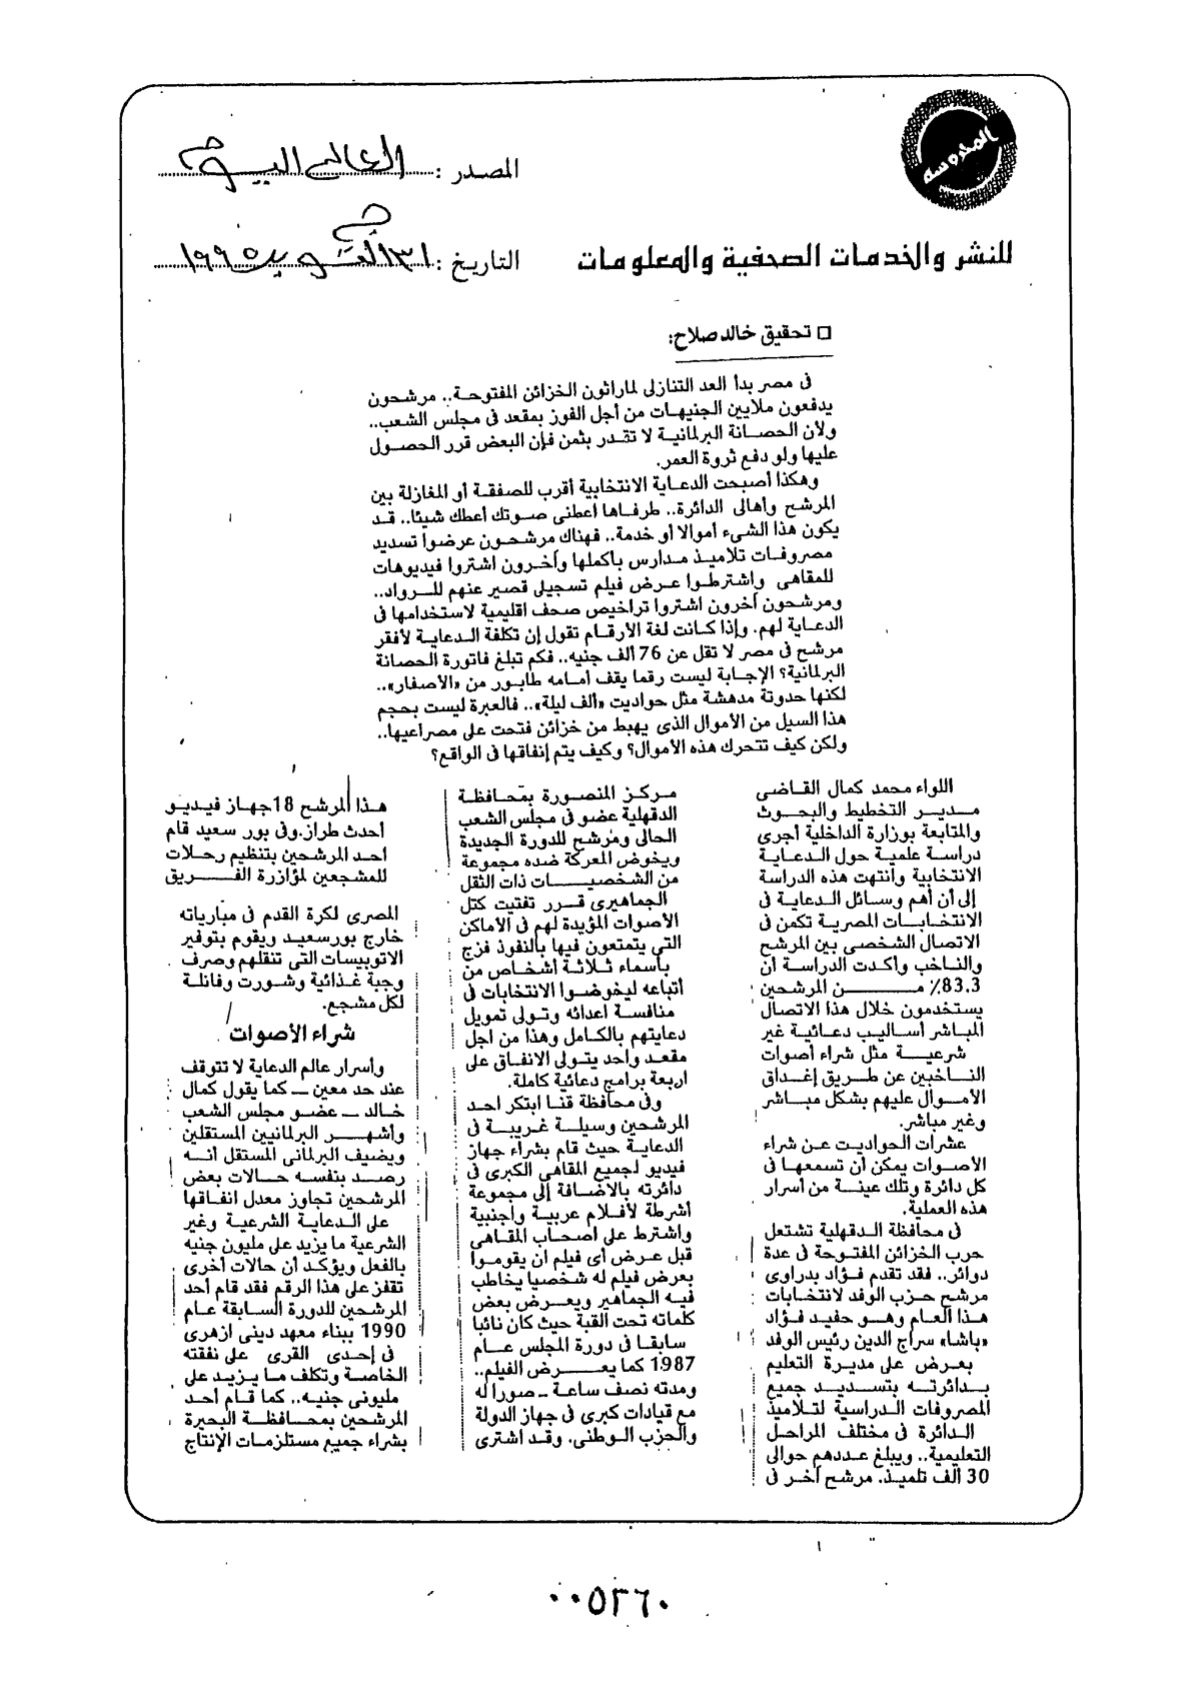 المحروسة
المصدر : العالم اليوم
للنشر والخدمات الصحفية والمعلومات
التاريخ : ٣١ اكتوبر ١٩٩٥
□ تحقيق خالد صلاح:
فى مصر بدأ العد التنازلى لماراثون الخزائن المفتوحة.. مرشحون
يدفعون ملايين الجنيهات من أجل الفوز بمقعد فى مجلس الشعب..
ولأن الحصانة البرلمانية لا تقدر بثمن فإن البعض قرر الحصول
عليها ولو دفع ثروة العمر.
وهكذا أصبحت الدعاية الانتخابية أقرب للصفقة أو المغازلة بين
المرشح وأهالى الدائرة.. طرفاها أعطنى صوتك أعطك شيئا.. قد
يكون هذا الشىء أموالا أو خدمة.. فهناك مرشحون عرضوا تسديد
مصروفات تلاميذ مدارس بأكملها وأخرون اشتروا فيديوهات
للمقاهى واشترطوا عرض فيلم تسجيلى قصير عنهم للرواد..
ومرشحون أخرون اشتروا تراخيص صحف اقليمية لاستخدامها فى
الدعاية لهم. وإذا كانت لغة الأرقام تقول إن تكلفة الدعاية لأفقر
مرشح فى مصر لا تقل عن 76 ألف جنيه.. فكم تبلغ فاتورة الحصانة
البرلمانية؟ الإجابة ليست رقما يقف أمامه طابور من «الأصفار»..
لكنها حدوتة مدهشة مثل حواديت «ألف ليلة».. فالعبرة ليست بحجم
هذا السيل من الأموال الذى يهبط من خزائن فتحت على مصراعيها..
ولكن كيف تتحرك هذه الأموال؟ وكيف يتم إنفاقها فى الواقع؟
اللواء محمد كمال القاضى
مدير التخطيط والبحوث
والمتابعة بوزارة الداخلية أجرى
دراسة علمية حول الدعاية
الانتخابية وانتهت هذه الدراسة
إلى أن أهم وسائل الدعاية فى
الانتخابات المصرية تكمن فى
الاتصال الشخصى بين المرشح
والناخب وأكدت الدراسة أن
83.3٪ من المرشحين
يستخدمون خلال هذا الاتصال
المباشر أساليب دعائية غير
شرعية مثل شراء أصوات
الناخبين عن طريق إغداق
الأموال عليهم بشكل مباشر
وغير مباشر.
عشرات الحواديت عن شراء
الأصوات يمكن أن تسمعها فى
كل دائرة وتلك عينة من أسرار
هذه العملية.
فى محافظة الدقهلية تشتعل
حرب الخزائن المفتوحة فى عدة
دوائر.. فقد تقدم فؤاد بدراوى
مرشح حزب الوفد لانتخابات
هذا العام وهو حفيد فؤاد
«باشا» سراج الدين رئيس الوفد
بعرض على مديرة التعليم
بدائرته بتسديد جميع
المصروفات الدراسية لتلاميذ
الدائرة فى مختلف المراحل
التعليمية.. ويبلغ عددهم حوالى
30 ألف تلميذ. مرشح أخر فى
مركز المنصورة بمحافظة
الدقهلية عضو فى مجلس الشعب
الحالى ومرشح للدورة الجديدة
ويخوض المعركة ضده مجموعة
من الشخصيات ذات الثقل
الجماهيرى قرر تفتيت كتل
الأصوات المؤيدة لهم فى الأماكن
التي يتمتعون فيها بالنفوذ فزج
بأسماء ثلاثة أشخاص من
أتباعه ليخوضوا الانتخابات فى
منافسة اعدائه وتولى تمويل
دعايتهم بالكامل وهذا من اجل
مقعد واحد يتولى الانفاق على
اربعة برامج دعائية كاملة.
وفى محافظة قنا ابتكر احد
المرشحين وسيلة غريبة فى
الدعاية حيث قام بشراء جهاز
فيديو لجميع المقاهى الكبرى فى
دائرته بالاضافة إلى مجموعة
أشرطة لأفلام عربية وأجنبية
واشترط على أصحاب المقاهى
قبل عرض أى فيلم ان يقوموا
بعرض فيلم له شخصيا يخاطب
فيه الجماهير ويعرض بعض
كلماته تحت القبة حيث كان نائبا
سابقا فى دورة المجلس عام
1987 كما يعرض الفيلم..
ومدته نصف ساعة ــ صورا له
مع قيادات كبرى فى جهاز الدولة
والحزب الوطنى. وقد اشترى
هذا المرشح 18جهاز فيديو
أحدث طراز.وفى بور سعيد قام
احد المرشحين بتنظيم رحلات
للمشجعين لمؤازرة الفريق
المصرى لكرة القدم فى مبارياته
خارج بورسعيد ويقوم بتوفير
الاتوبيسات التى تنقلهم وصرف
وجبة غذائية وشورت وفانلة
لكل مشجع.
شراء الأصوات
وأسرار عالم الدعاية لا تتوقف
عند حد معين ــ كما يقول كمال
خالد ــ عضو مجلس الشعب
وأشهر البرلمانيين المستقلين
ويضيف البرلمانى المستقل أنه
رصد بنفسه حالات بعض
المرشحين تجاوز معدل انفاقها
على الدعاية الشرعية وغير
الشرعية ما يزيد على مليون جنيه
بالفعل ويؤكد أن حالات أخرى
تقفز على هذا الرقم فقد قام أحد
المرشحين للدورة السابقة عام
1990 ببناء معهد دينى ازهرى
فى إحدى القرى على نفقته
الخاصة وتكلف ما يزيد على
مليونى جنيه.. كما قام أحد
المرشحين بمحافظة البحيرة
بشراء جميع مستلزمات الإنتاج
٠٠٥٣٦٠